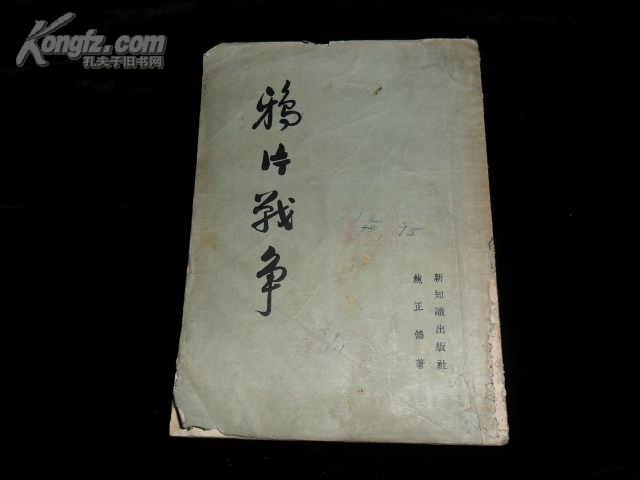 Kongfz.com
孔夫子旧书网
鴉片戰争
新知識出版社
鮑正鵠著
95